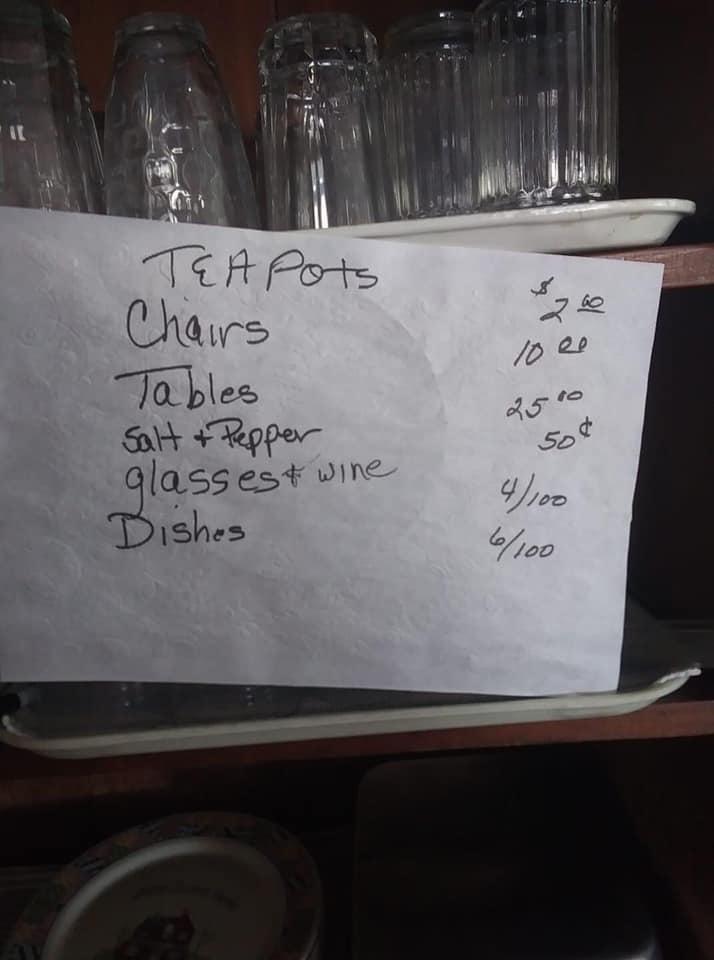 TEA Pots $2.00
Chairs 10.00
Tables 25.00
Salt + Pepper 50¢
glasses & wine 4/100
Dishes 6/100